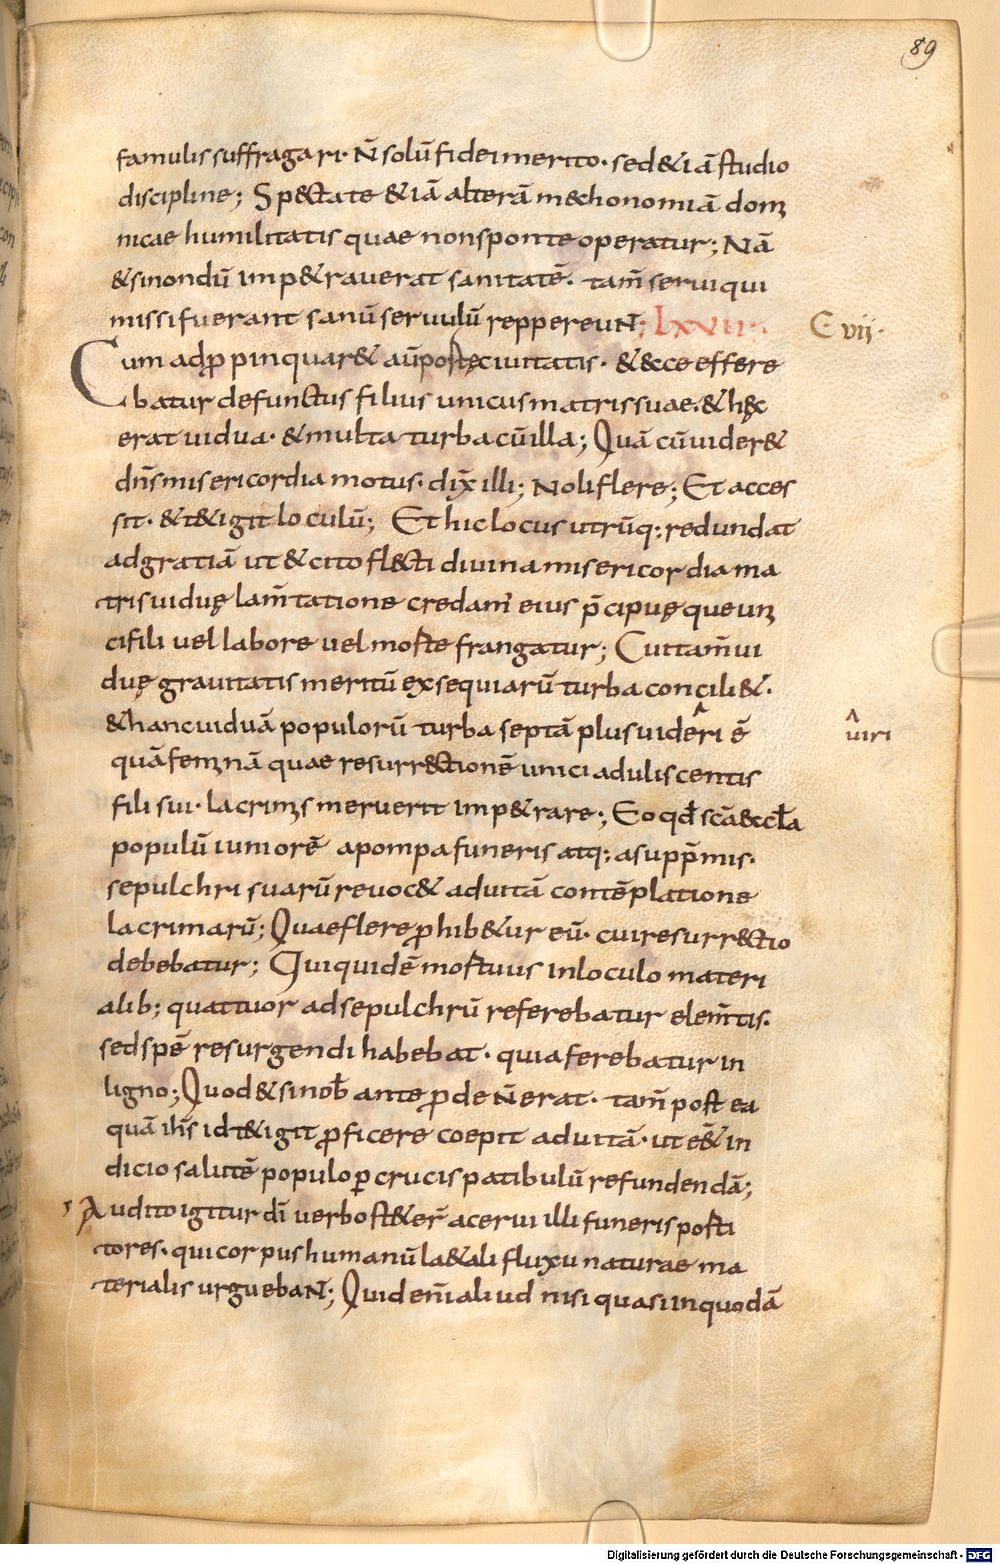 89
famulis suffragari· N̄ solū fidei merito· sed & iā studio
discipline; Spectate & iā alterā mechonomiā domi
nicae humilitatis quae non sponte operatur; Nā
& si nondū imp&raverat sanitatē· tam̄ servi qui
missi fuerant sanū servulū reppereuN; LXXVII·
C vij·
Cum adp̱pinquar& aū portę civitatis· & ecce effere
batur defunctus filius unicus matris suae· & hęc
erat vidua· & multa turba cū illa; Quā cū vider&
dn̄s misericordia motus· dix̄ illi; Noli flere; Et acces
sit· & t&igit loculū; Et hic locus utrūq; redundat
ad gratiā ut & cito flecti divina misericordia ma
tris viduę lam̄tatione credam̄ eius p̄cipuę que uni
ci fili vel labore vel morte frangatur; Cui tam̄ vi
duę gravitatis meritū exsequiarū turba concili&·
& hanc viduā populorū turba septā plus videri ē
viri
quā feminā quae resurrectionē unici aduliscentis
fili sui· lacrimis meruerit imp&rare; Eo qd̄ scā eccl̄a
populū iuniorē a pompa funeris atq; a supp̄mis·
sepulchri suarū revoc& ad vitā contēplatione
lacrimarū; Quae flere p̱hib&ur eū· cui resurrectio
debebatur; Qui quidē mortuus in loculo materi
alib; quattuor ad sepulchrū referebatur elem̄tis·
sed spē resurgendi habebat· quia ferebatur in
ligno; Quod & si nob̄ ante p̱de N̄ erat· tam̄ post ea
quā ih̄s id t&igit p̱ficere coepit ad vitā· ut eēt in
dicio salutē populo p̱ crucis patibulū refundendā;
Audito igitur dī verbo st&er̄ acervi illi funeris porti
tores· qui corpus humanū l&ali fluxu naturae ma
terialis urguebaN; Quid enī aliud nisi quasi in quodā
Digitalisierung gefördert durch die Deutsche Forschungsgemeinschaft - DFG